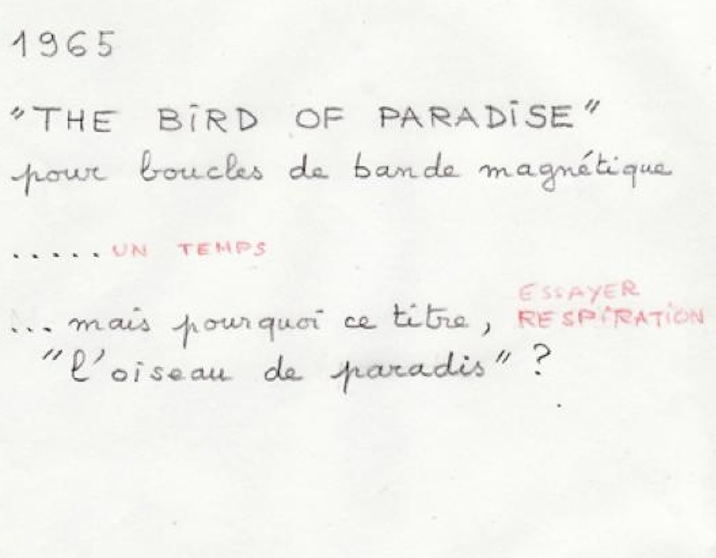 1965
"THE BIRD OF PARADISE"
pour boucles de bande magnétique
..... UN TEMPS
ESSAYER
... mais pourquoi ce titre, RESPIRATION
"l'oiseau de paradis" ?